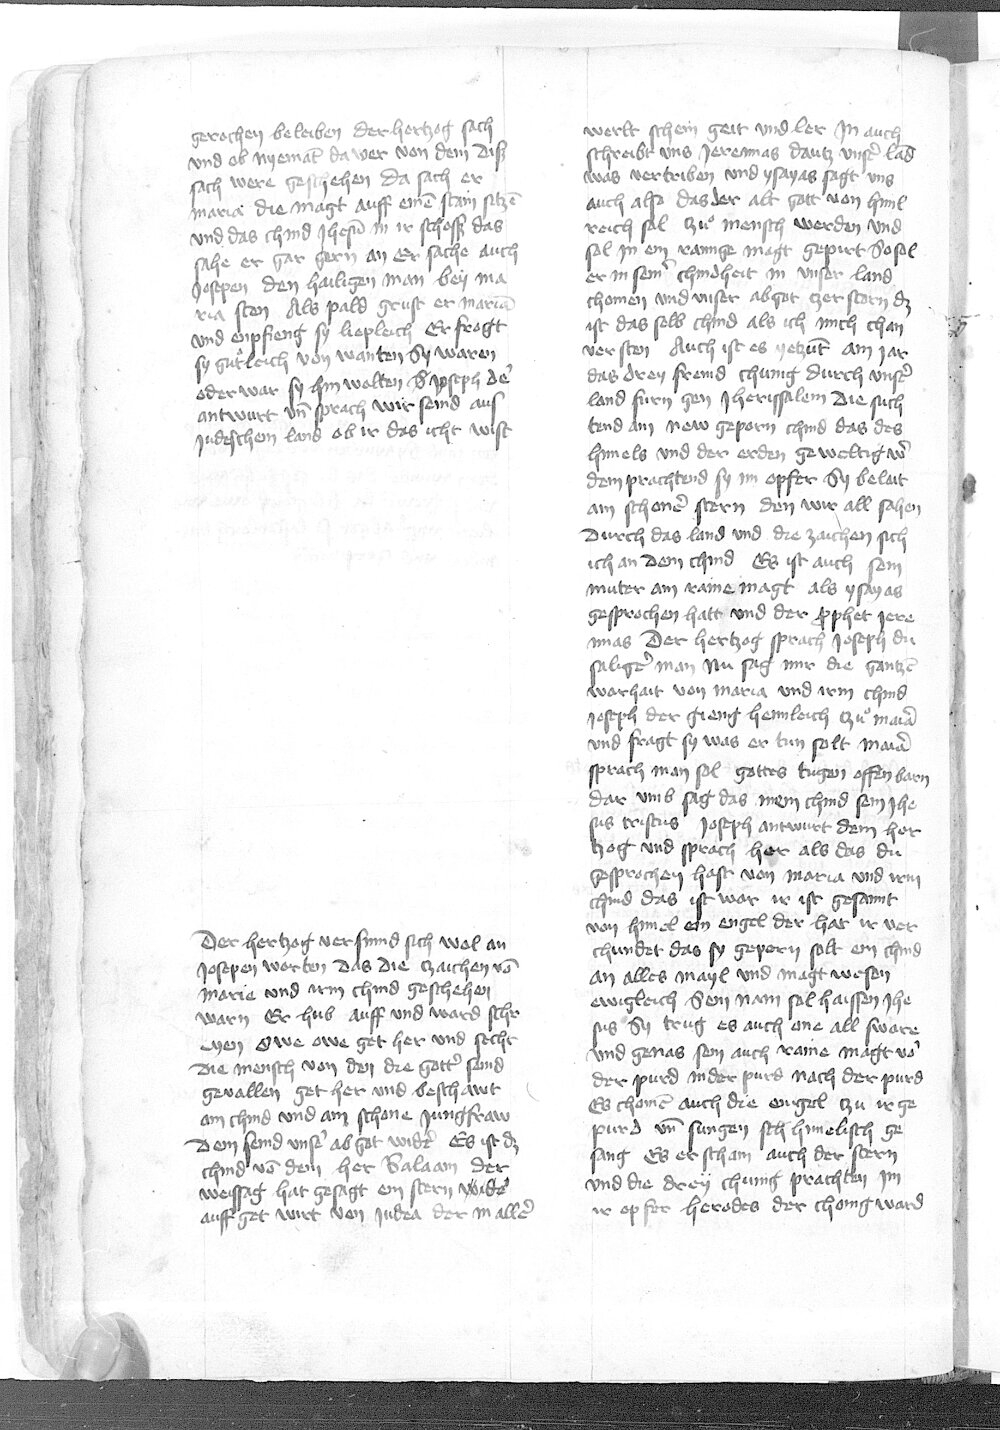 gerochen beleiben der hertzog sach
und ob nyemāt da wer von dem diß
sach were geschehen Da sach er
maria die magt auff einē stain sitzē
und das chind Jhesū in ir schosß das
sahe er gar gern an Er sache auch
Josepen den hailigen man bey ma
ria sten Als pald grust er mariā
und enpfieng sy liepleich Er fragt
sy gutleich von wanten Sy waren
oder war sy hin wolten S Joseph de͛
antwurt vn̄ sprach wir seind aus
Judeschem land ob ir das icht wist
Der hertzog versinnd sich wol an
Josepen worten Das die tzaichen vō
marie und irm chind geschehen
warn Er hub auff und ward schr
yen Owe owe get her und secht
die mensch von den die gött͛ seind
gevallen get her und beschawt
am chind und am schone Jungfraw
Dem seind unse͛ abgot wide͛ Es ist dz
chind vō dem her Balaam der
weissag hat gesagt ein stern wide͛
auff get wirt von Judea der in alle͛
werlt schein geit und ler In auch
schreibt uns Jeremias dautz unse͛ lād
was vertriben und ysayas sagt uns
auch also das der alt gott von himl
reich sol zů mensch werden und
sol in ein rainge magt gepirt So sol
er in sein͛ chindheit in unser land
chomen und unser abgot tzerstorn dz
ist das selb chind als ich mich chan
versten Auch ist es yetzūt am jar
das drey fremd chunig durch unse͛
land furn gen Jherussalem Die such
tend am new geporn chind das des
himels und der erden geweltig we͛
dem prachtend sy im opfer Sy beleit
am schone͛ stern den wir all sahen
Durch das land und die zaichen sich
ich an dem chind Es ist auch sein
muter am raine magt als ysayas
gesprochen hatt und der prophet Jere
mias Der hertzog sprach Joseph du
salige͛ man Nu sag mir die gantzē
warhait von maria und irm chind
Joseph der gieng heimleich tzů maiā
und fragt sy was er tun solt maiā
sprach man sol gottes tugen offenbarn
dar umb sag das mein chind sein Jhe
sus cristus Joseph antwurt dem her
tzog und sprach her als das du
gesprochen hast von maria und irm
chind das ist war ir ist gesannt
von himel ein engel der hat ir ver
chundet das sy gepern solt ein chind
an alles mayl und magt wesen
ewigleich Sein nam sol haissen Jhe
sus Sy trug es auch one all sware
und genas sein auch raine magt vo͛
der purd in der purd nach der purd
Es chomē auch die engel tzu ir ge
purd vn̄ sungen sch himelisch ge
sang Es erscham auch der stern
und die drey chunig prachten im
ir opfer herodes der chonig ward